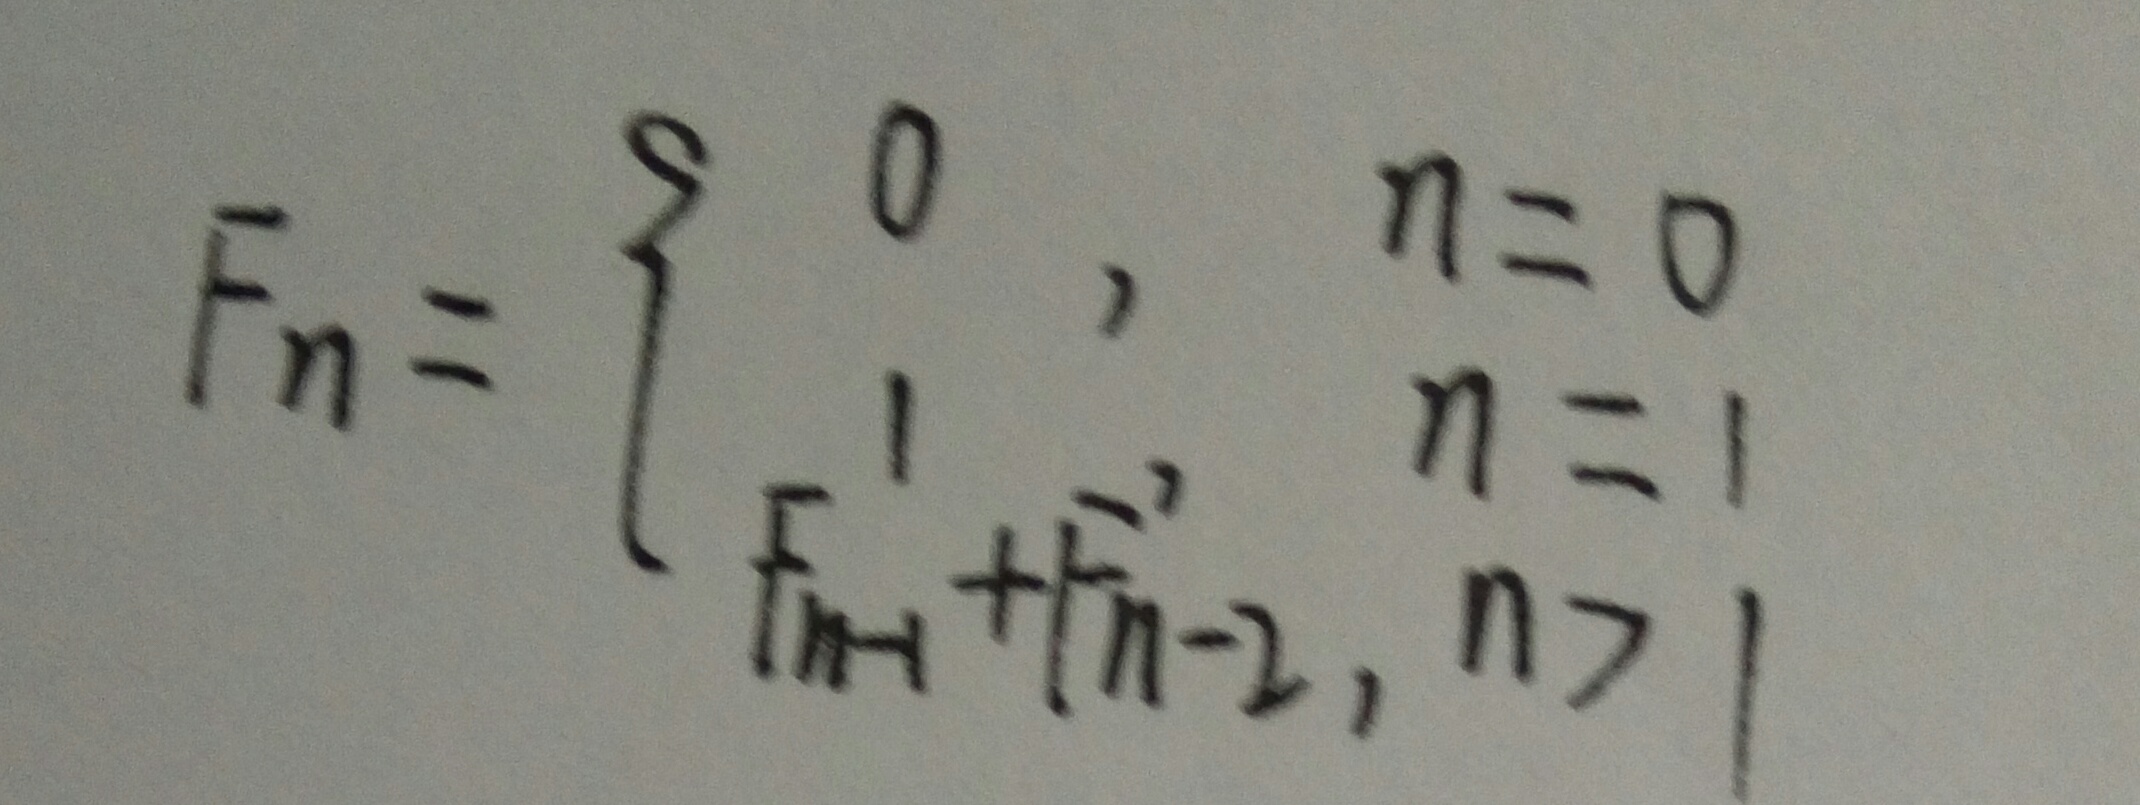 F_n = { 0 , n = 0
1 , n = 1
F_{n-1} + F_{n-2} , n > 1